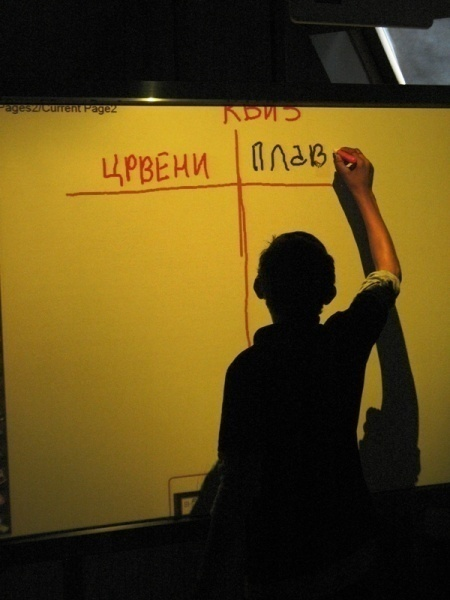 Pages2/Current Page2
КВИЗ
ЦРВЕНИ ПЛАВ